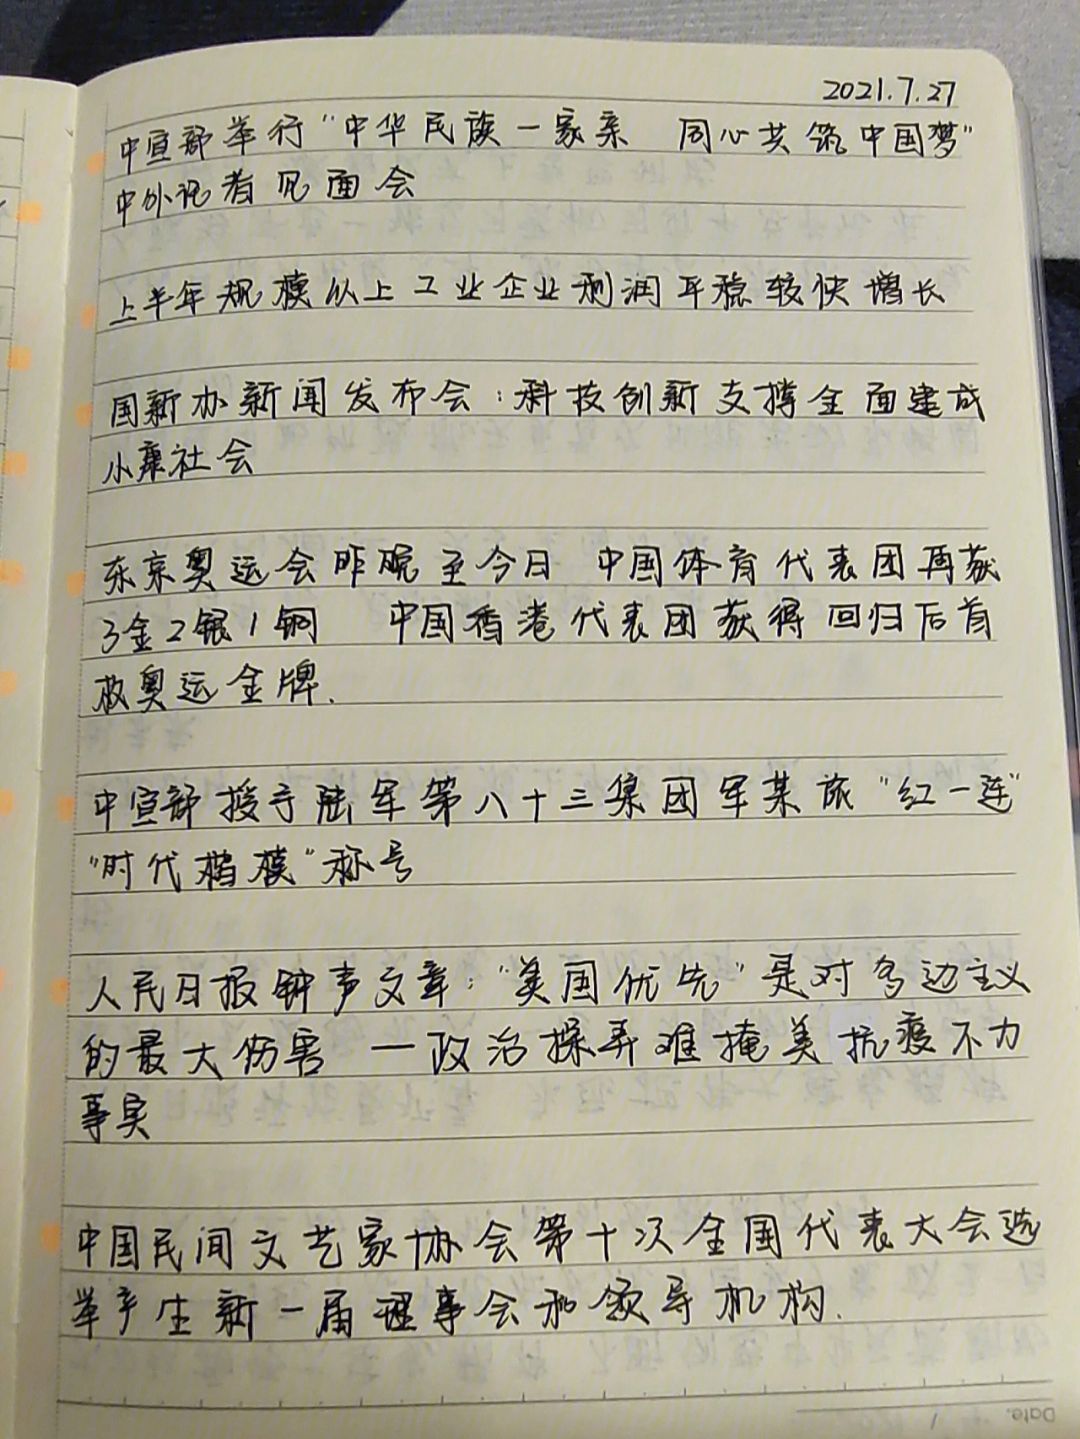 2021.7.27
中宣部举行“中华民族一家亲 同心共筑中国梦”
中外记者见面会
上半年规模以上工业企业利润平稳较快增长
国新办新闻发布会:科技创新支撑全面建成
小康社会
东京奥运会昨晚至今日 中国体育代表团再获
3金2银1铜 中国香港代表团获得回归后首
枚奥运金牌.
中宣部授予陆军第八十三集团军某旅“红一连”
“时代楷模”称号
人民日报钟声文章:“美国优先”是对多边主义
的最大伤害 一政治操弄难掩美抗疫不力
事实
中国民间文艺家协会第十次全国代表大会选
举产生新一届理事会和领导机构.
Date.